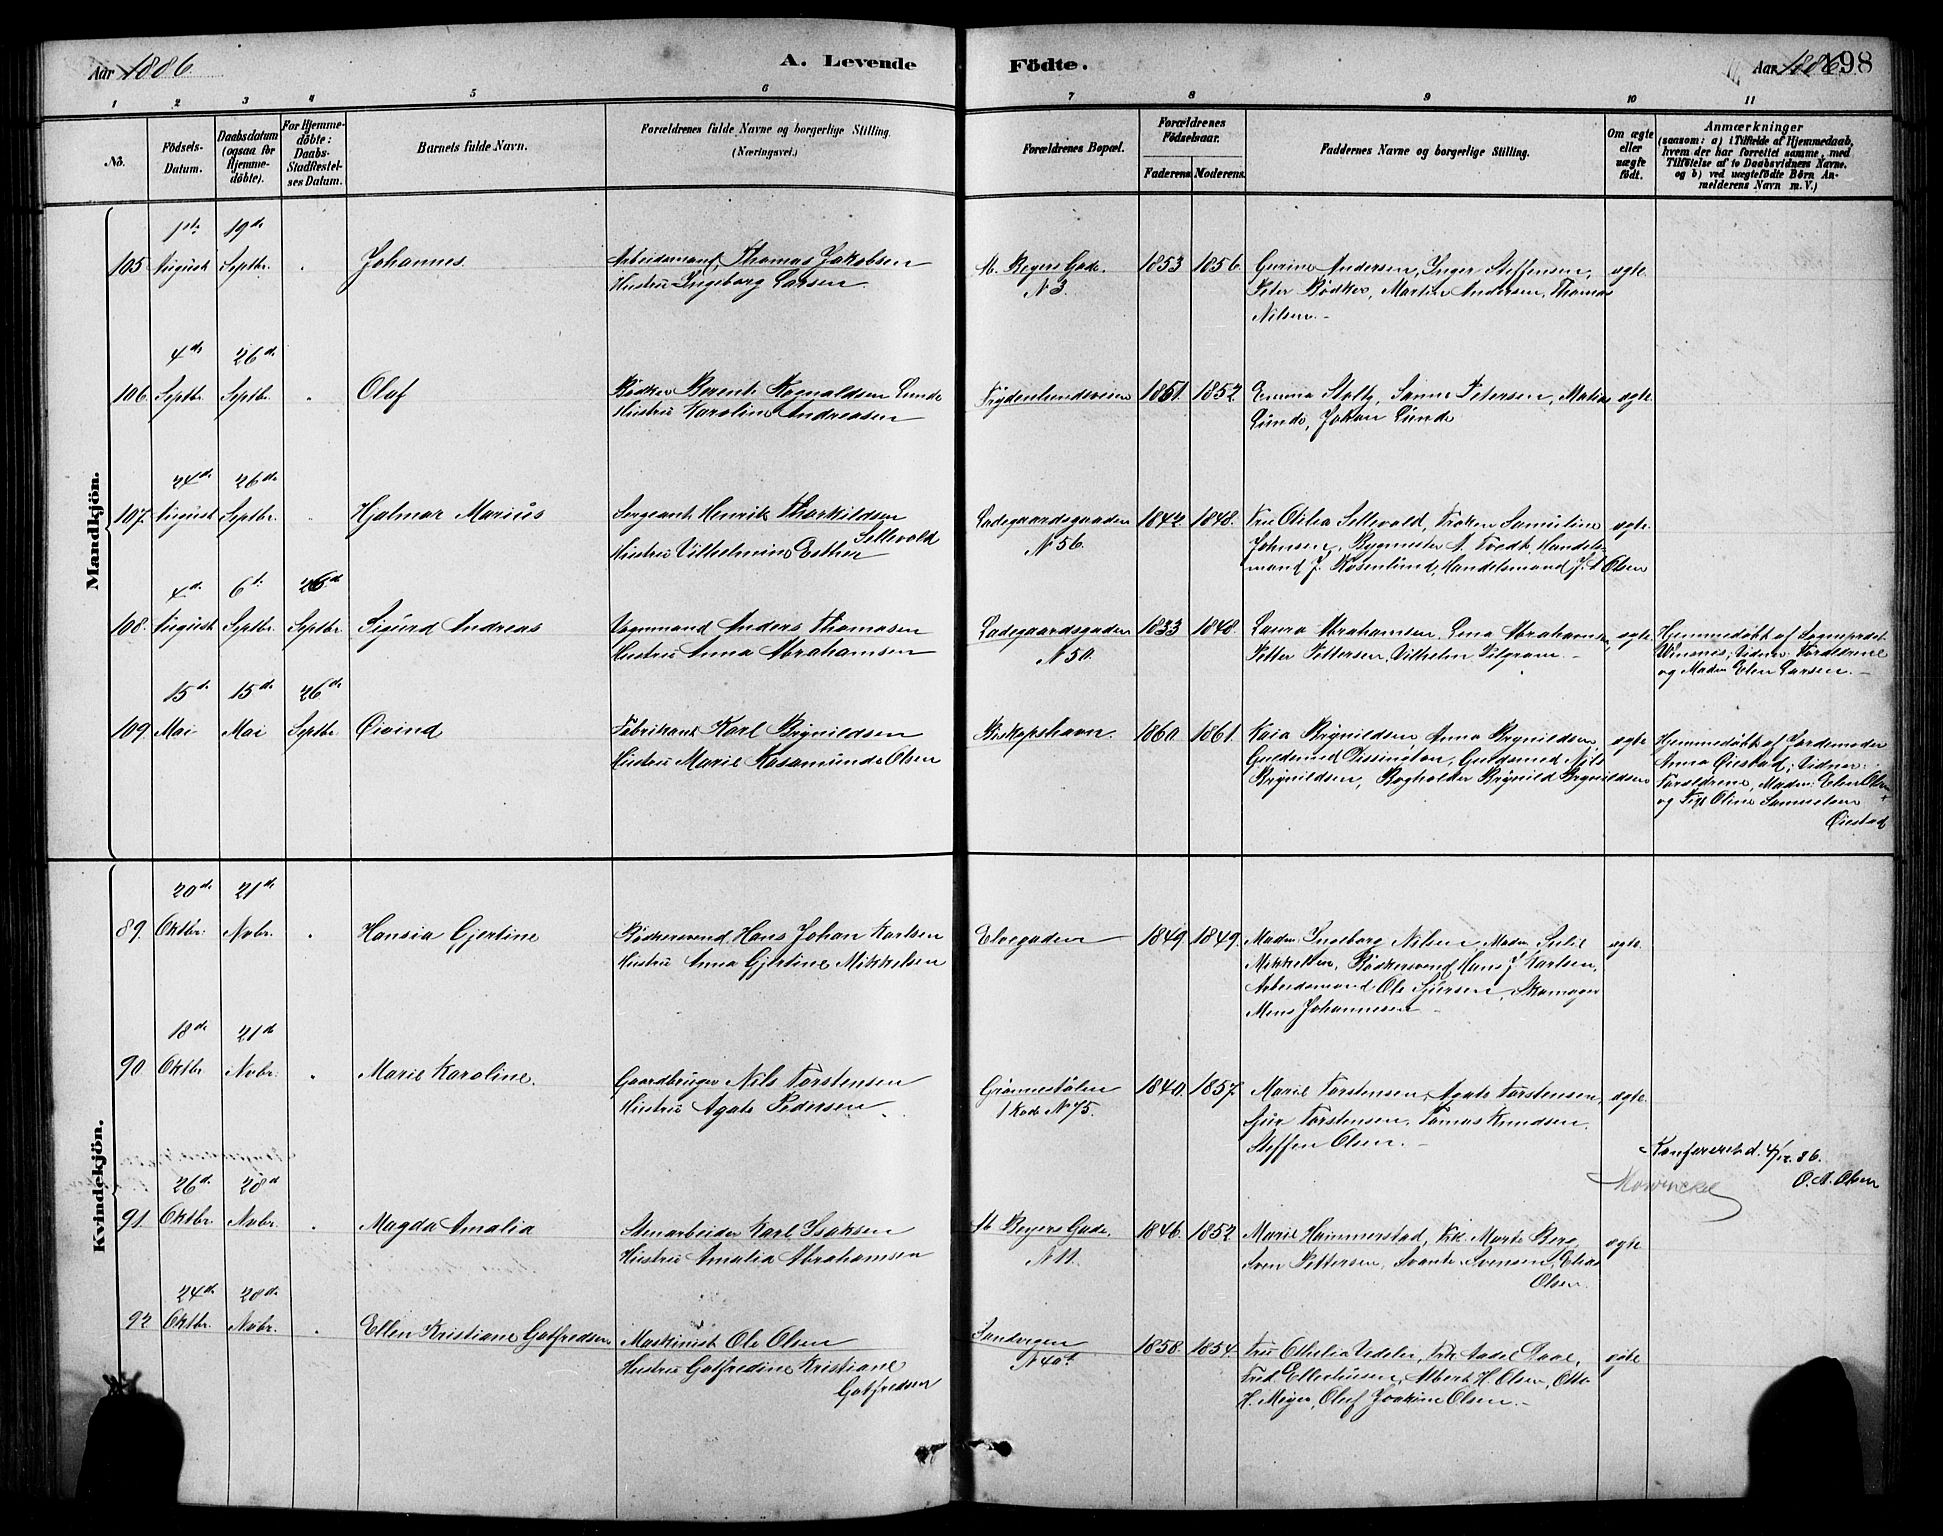 Aar 1886
A. Levende
Födte.
Aar 1886
198
1 2 3 4 5 6 7 8 9 10 11
No.
Födsels-Datum.
Daabsdatum (ogsaa for Hjemme-döbte).
For Hjemme-döbte: Daabs-Stadfæstel-ses Datum.
Barnets fulde Navn.
Forældrenes fulde Navne og borgerlige Stilling.
(Næringsvei.)
Forældrenes Bopæl.
Forældrenes Födselsaar.
Faderens Moderens
Faddernes Navne og borgerlige Stilling.
Om ægte eller uægte födt.
Anmærkninger
(saasom: a) i Tilfælde af Hjemmedaab,
hvem der har forrettet samme, med
Tilföielse af to Daabsvidners Navne,
og b) ved uægtefödte Börn An-
melderens Navn m. V.)
Mandkjön.
1ste 19de
105 August Septbr. " Johannes. Arbeidsmand Thomas Jakobsen
Hustru Ingeborg Larsen
M. Beyers Gade. 1853 1856
N 3.
Gurine Andersen, Inger Steffensen, ægte
Peter Bödker, Martin Andersen, Thomas
Nilsen.
4de 26de
106. Septbr. Septbr. " Olaf Bödker Berent Rognaldsen Lunde
Hustru Karoline Andreasen
Frydenlundsveien 1851. 1852
Emma Stolz, Sanne Petersen, Matias ægte
Lunde, Johan Lunde
24de 26de
107. August Septbr. " Hjalmar Marius Sergeant Henrik Tharkildsen
Sellevold
Hustru Vilhelmine Esther
Ladegaardsgaden 1842 1848.
N 56.
Fru Otilia Sellevold, Fröken Samuline ægte.
Johnsen, Bygmester A. Tvedt, Handels-
mand J. Rosenlund, Handelsmand J. A Olsen
4de 6te 26de
108. August Septbr. Septbr Sigurd Andreas Vognmand Anders Thomasen
Hustru Anna Abrahamsen
Ladegaardsgaden 1833 1848.
N 50.
Laura Abrahamsen, Lina Abrahamsen, ægte.
Petter Pettersen, Vilhelm Pilgram.
Hjemmedöbt af Sogneprest
Winsnes; Vidner: Forældrene
og Madm Elen Larsen.
15de 15de 26de
109. Mai Mai Septbr Öivind Fabrikant Karl Brynildsen
Hustru Marie Rosamunde Olsen
Biskopshavn. 1860 1861.
Kaia Brynildsen, Anna Brynildsen, ægte
Guldsmed Dissington, Guldsmed Nils
Brynildsen, Bogholder Brynild Brynildsen
Hjemmedöbt af Jordemoder
Anna Öiestad; Vidner:
Forældrene, Madm: Elen Olsen
og Frk Oline Samuelsen
Öiestad
Kvindekjön.
20de 21de
89. Oktbr. Novbr. " Hansia Gjertine Bödkersvend Hans Johan Karlsen
Hustru Anna Gjertine Mikkelsen
Elvegaden 1849. 1849.
Madm: Ingeborg Nilsen, Madm Seli ægte.
Mikkelsen, Bödkersvend Hans J Karlsen,
Arbeidsmand Ole Sjursen, Skomager
Mons Johannesen
18de 21de
90. Oktbr Novbr. " Marie Karoline. Gaardbruger Nils Torstensen
Hustru Agate Pedersen
Grönnestölen 1840. 1857.
1 Rode N 75.
Marie Torstensen, Agate Torstensen, ægte.
Sjur Torstensen, Tomas Knudsen,
Steffen Olsen.
Konfereret d. 4/12. 86.
O. A. Olsen
Mowinckel
26de 28de
91. Oktbr. Novbr. " Magda Amalia Stenarbeider Karl Isaksen
Hustru Amalia Abrahamsen
M Beyers Gade. 1846. 1852
N 11.
Marie Hammerstad, Frk. Marte Berg, ægte
Sven Pettersen, Svante Svensen, Elias
Olsen.
24de 28de
92 Oktbr. Novbr. " Ellen Kristiane Gotfredsen Maskinist Ole Olsen
Hustru Gotfredine Kristiane
Gotfredsen
Sandvigen 1858. 1854.
N 40
Fru Othelia Vedeler, Frk Aadel Aase, ægte
Fred. Ellerhusen, Albert H. Olsen, Otto
H. Meyer, Oluf Joakim Olsen.